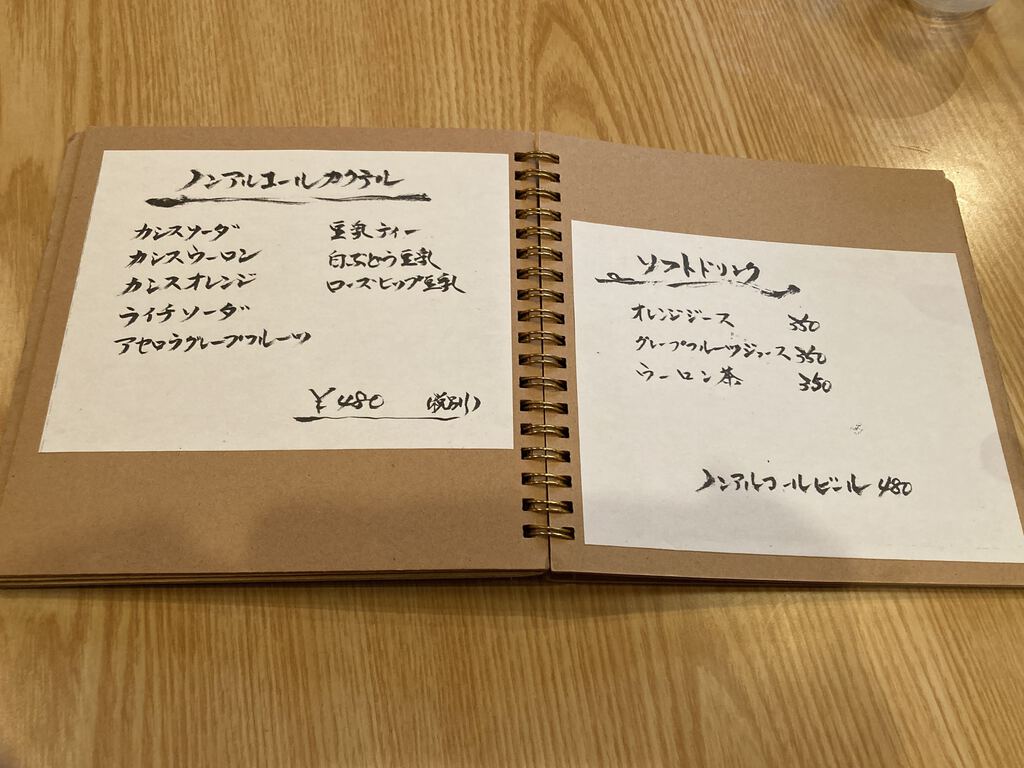 ノンアルコールカクテル
カシスソーダ
カシスウーロン
カシスオレンジ
ライチソーダ
アセロラグレープフルーツ
豆乳ティー
白ぶどう豆乳
ローズヒップ豆乳
¥480 (税別)
ソフトドリンク
オレンジジュース 350
グレープフルーツジュース 350
ウーロン茶 350
ノンアルコールビール 480